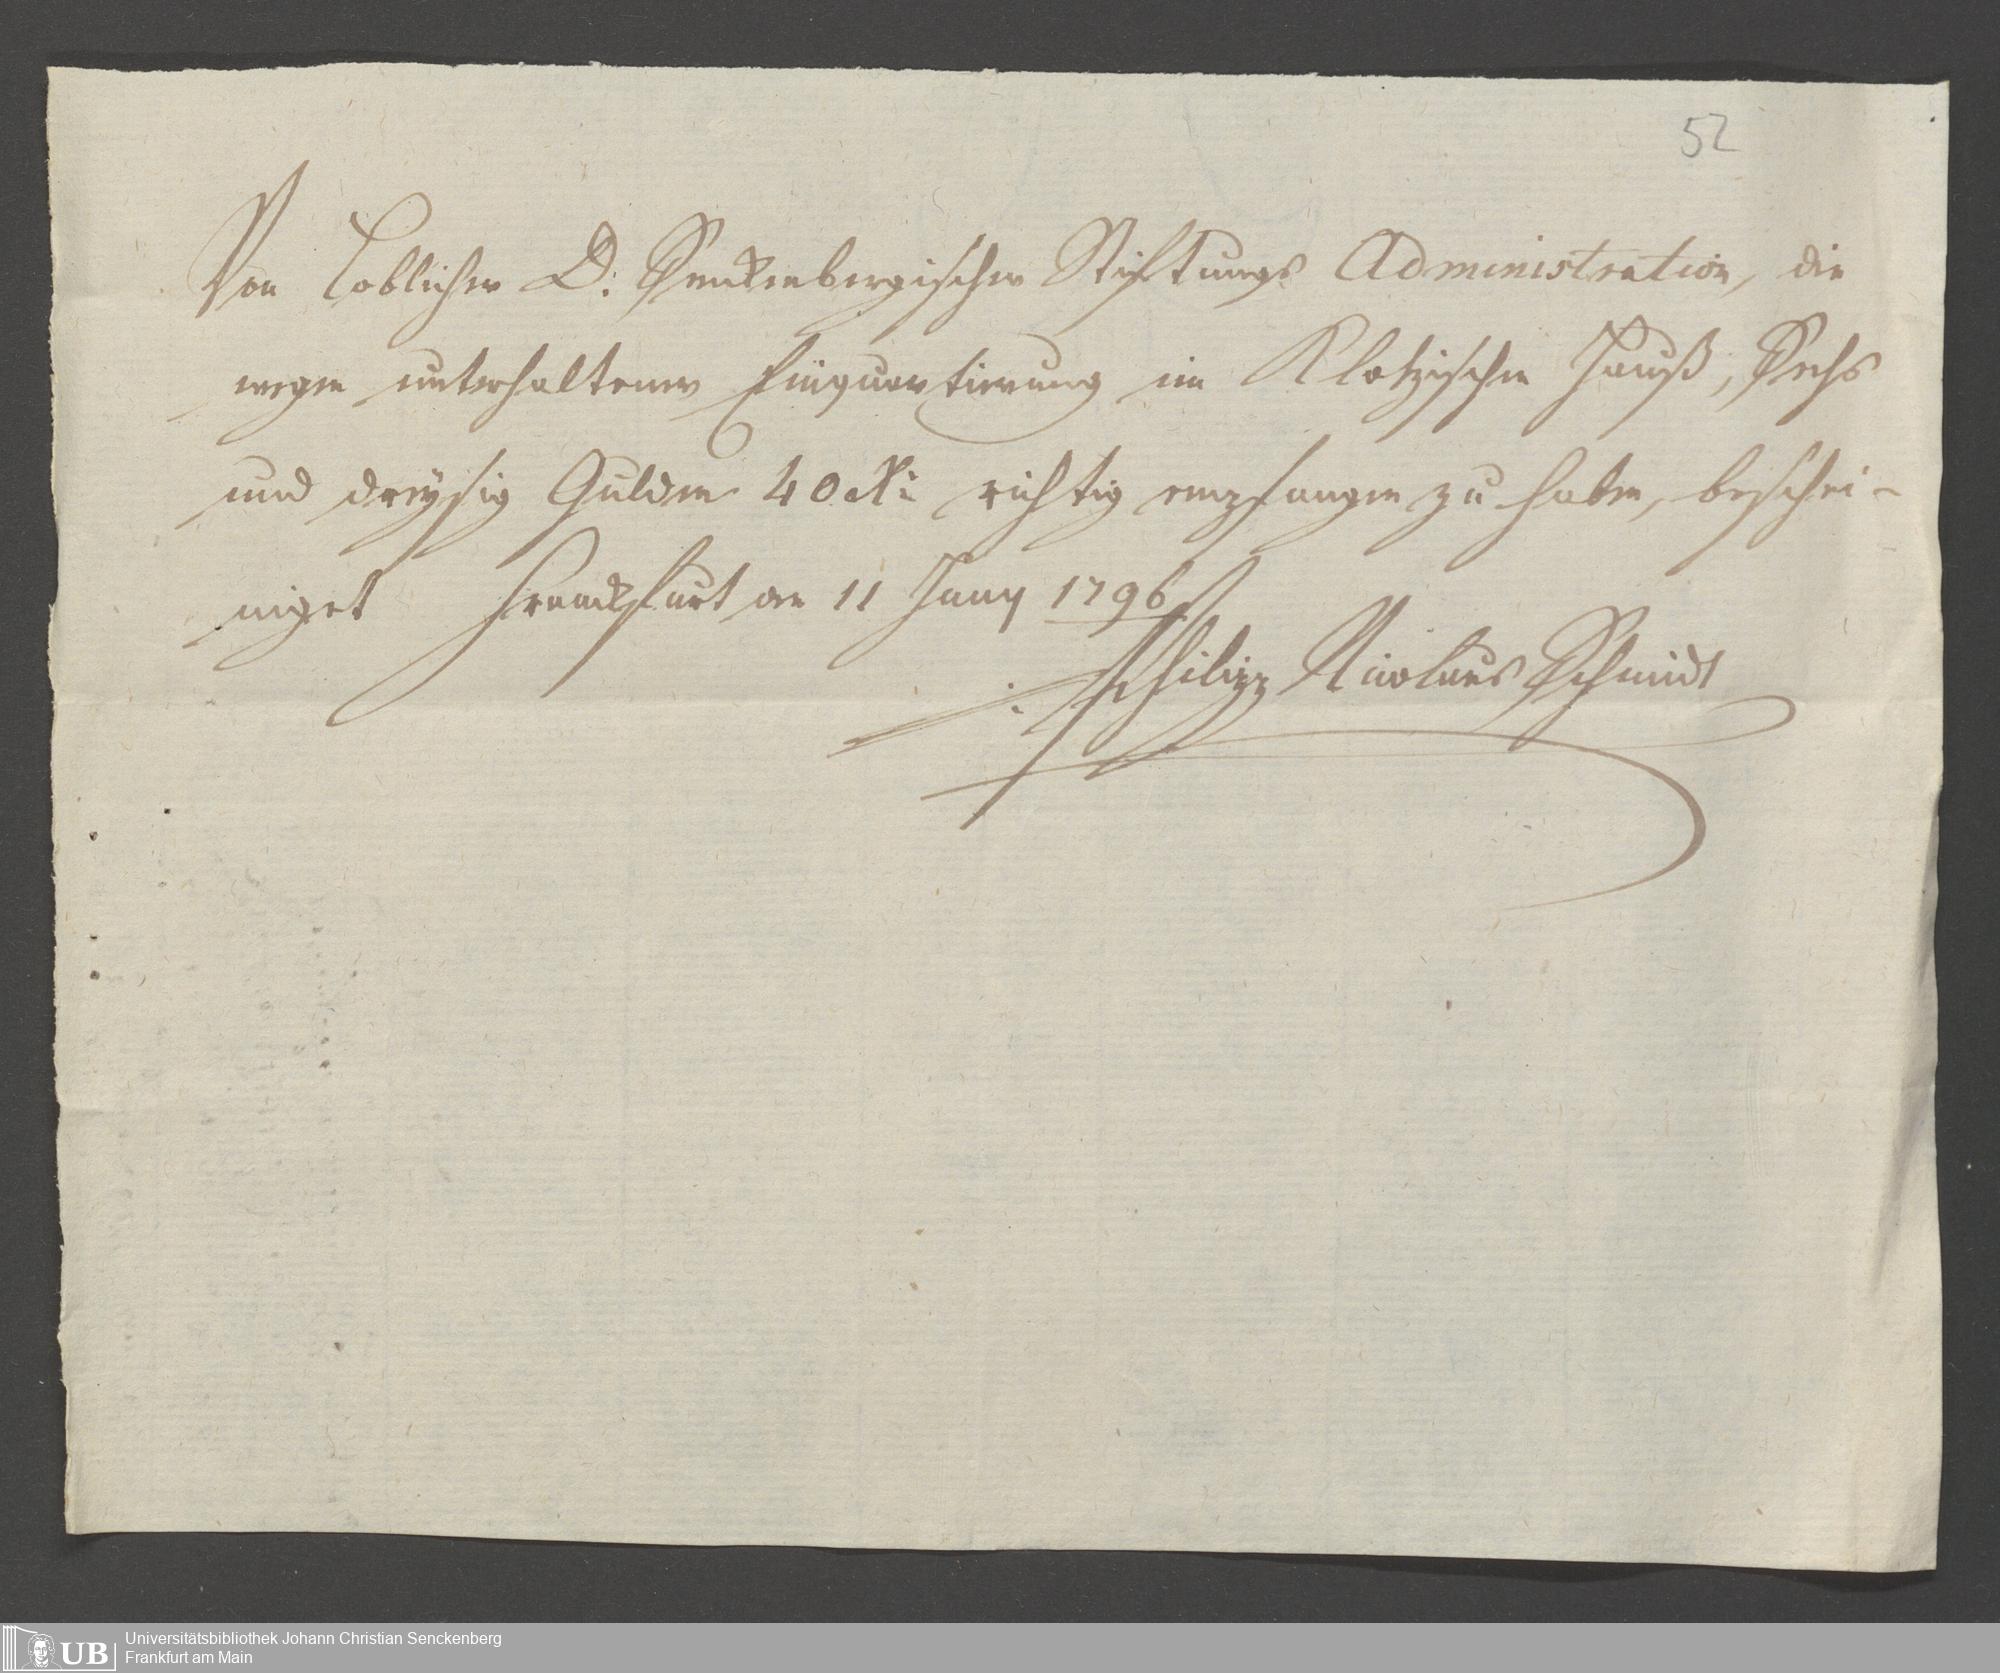 52
Von Loblicher D: Senckenbergischer Stiftungs Administration, die
wegen unterhaltener Einquartierung im Klotzischen Hauß, Sechs
und dreysig Gulden 40 Xr: richtig empfangen zu haben, beschei-
niget Franckfurt den 11 Jany 1796
Philipp Nicolaus Schmidt
UB
Universitätsbibliothek Johann Christian Senckenberg
Frankfurt am Main